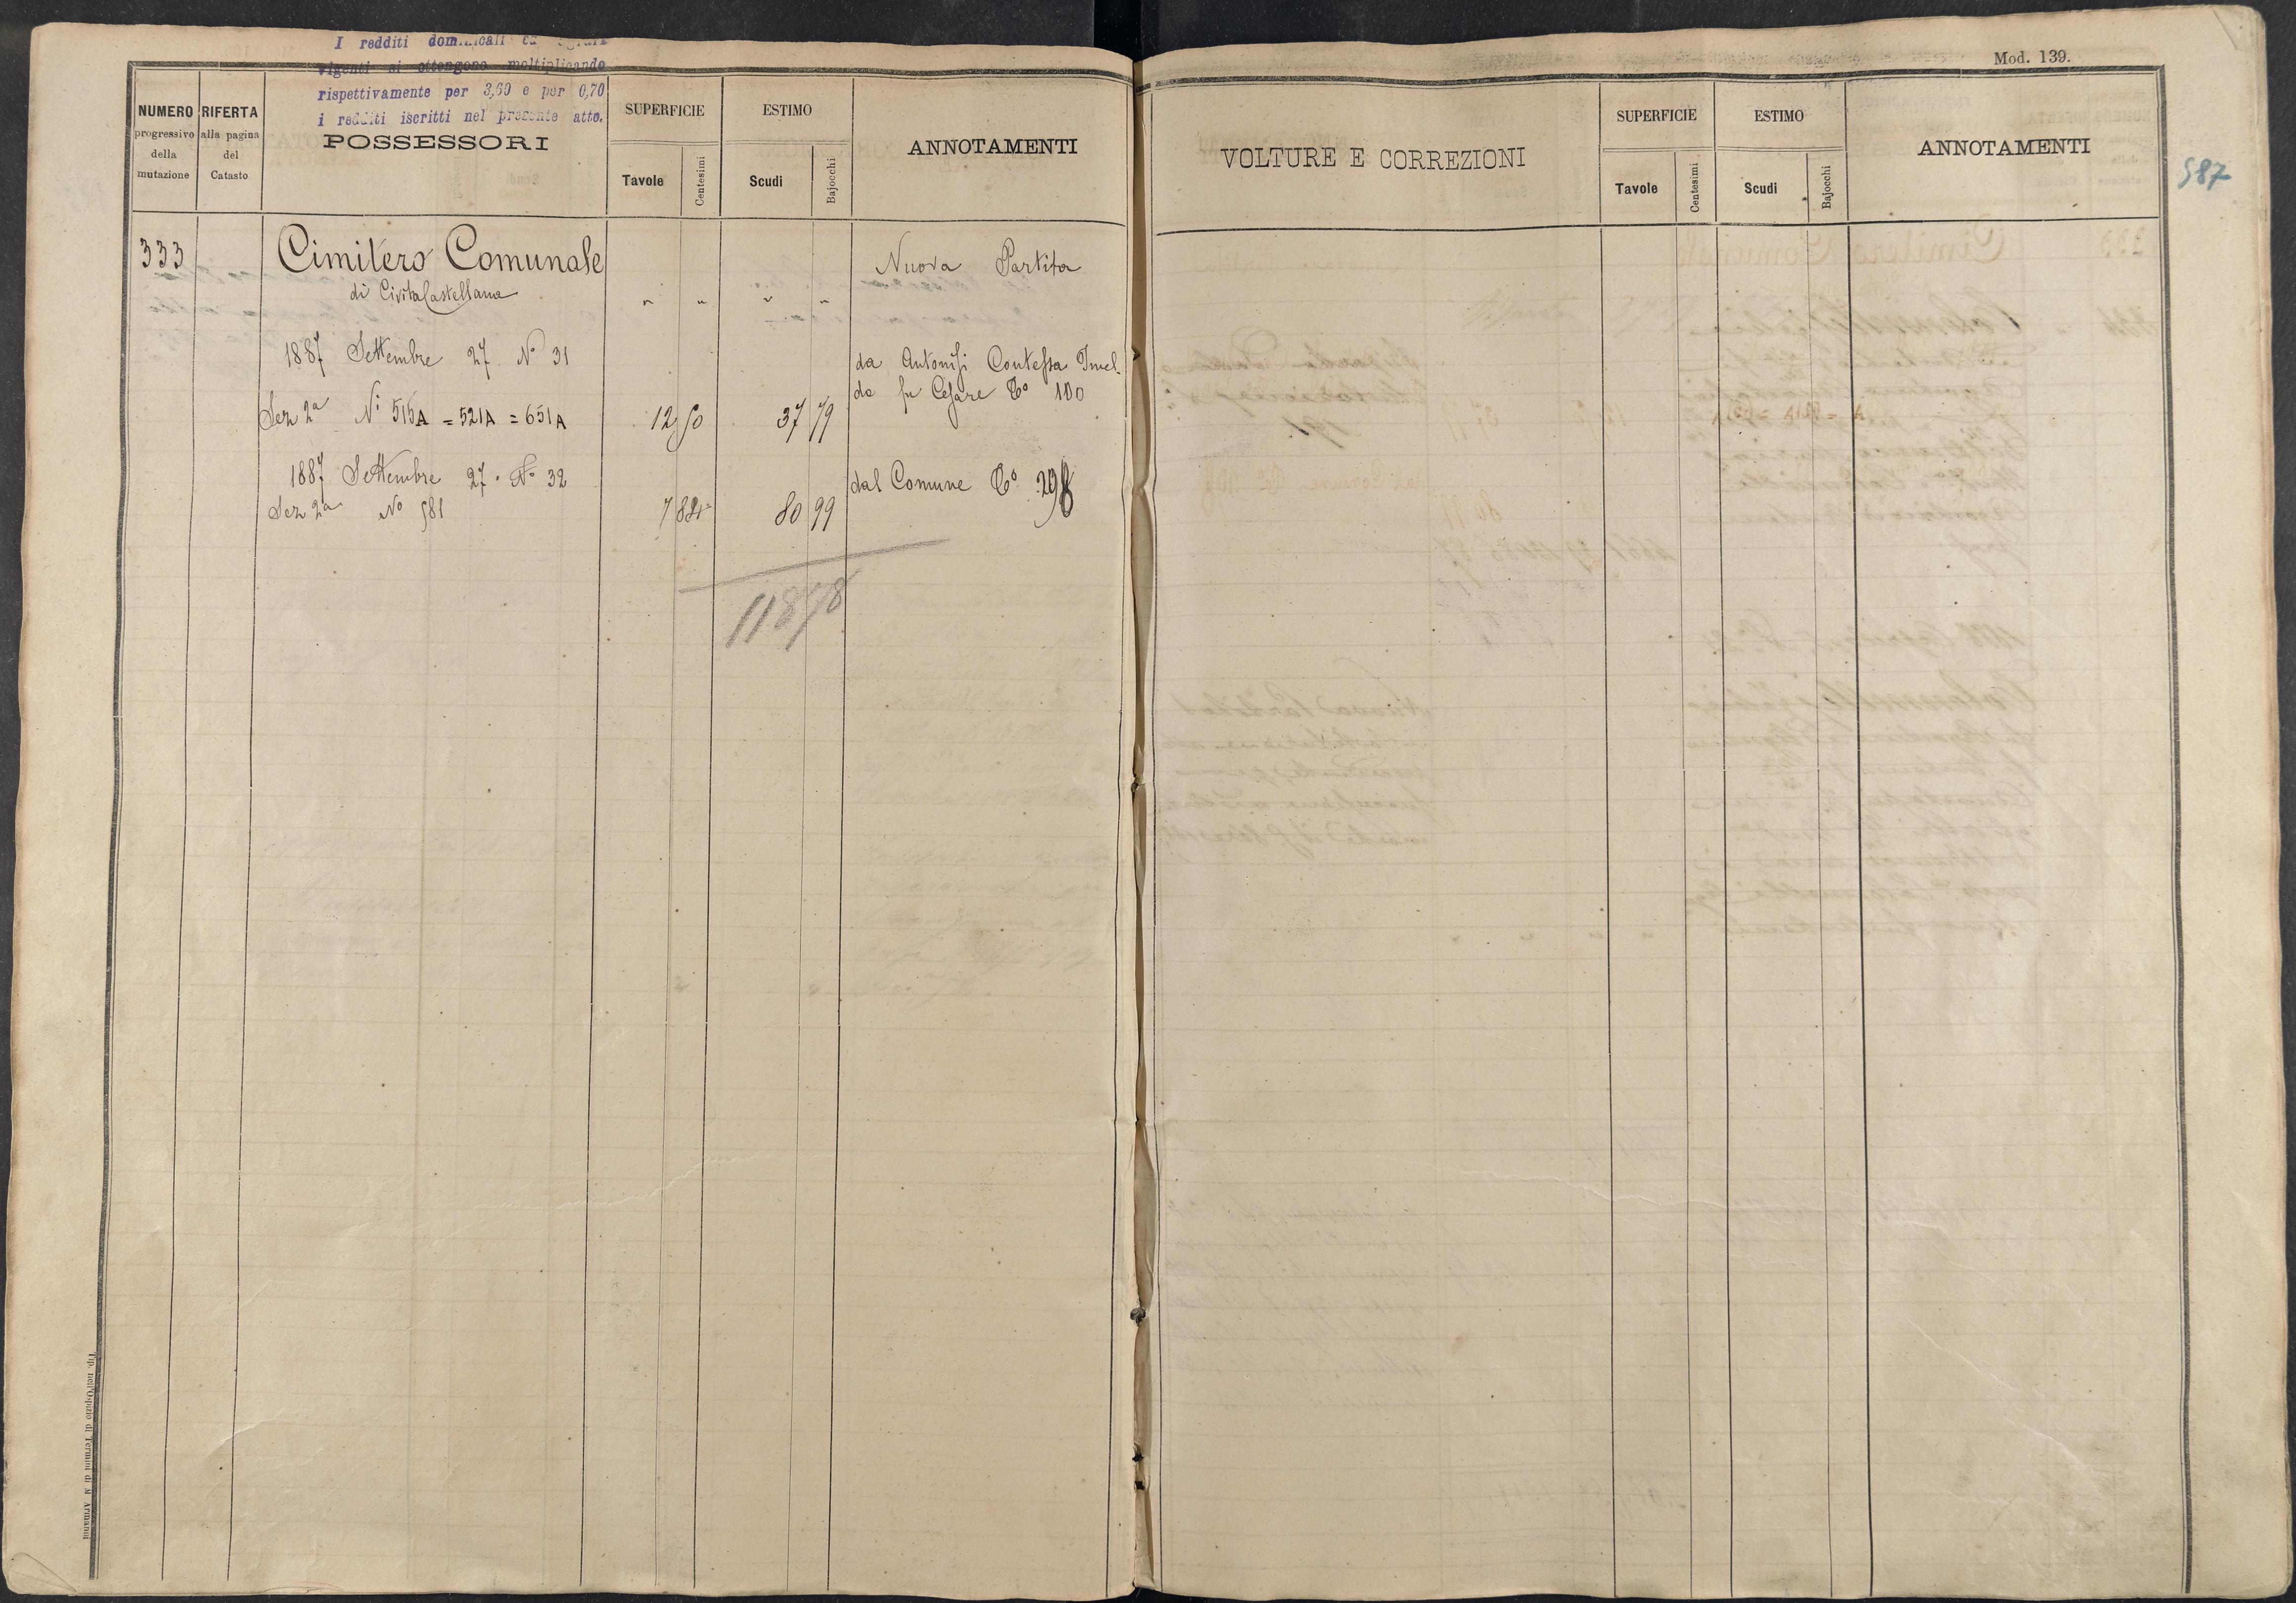 I redditi dominicali ed agrari
vigenti si ottengono moltiplicando
rispettivamente per 3,60 e per 0,70
i redditi iscritti nel presente atto.
NUMERO
progressivo
della
mutazione
RIFERTA
alla pagina
del
Catasto
POSSESSORI
SUPERFICIE
Tavole
Centesimi
ESTIMO
Scudi
Bajocchi
ANNOTAMENTI
333 Cimitero Comunale Nuova Partita
di CivitaCastellana " " " "
1887 Settembre 27 No 31 da Antonisi Contessa Imel.
da fu Cesare To 100
Sez 2a Ni 515A = 521A = 651A 12 50 37 79
1887 Settembre 27. No 32 dal Comune To 298
Sez 2a No 581 7 88 80 99
118 78
Tip. nell'Ospizio di Termini di N. Armanni
Mod. 139.
VOLTURE E CORREZIONI
SUPERFICIE
Tavole
Centesimi
ESTIMO
Scudi
Bajocchi
ANNOTAMENTI
587